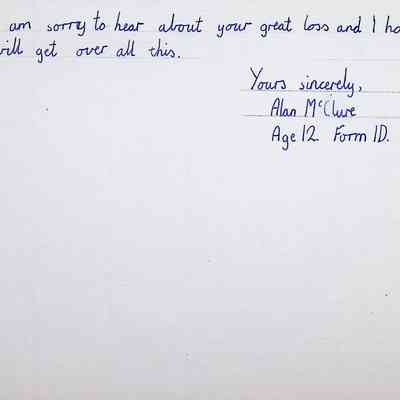 am sorry to hear about your great loss and I ho
will get over all this.
Yours sincerely,
Alan McClure
Age 12. Form 1D.